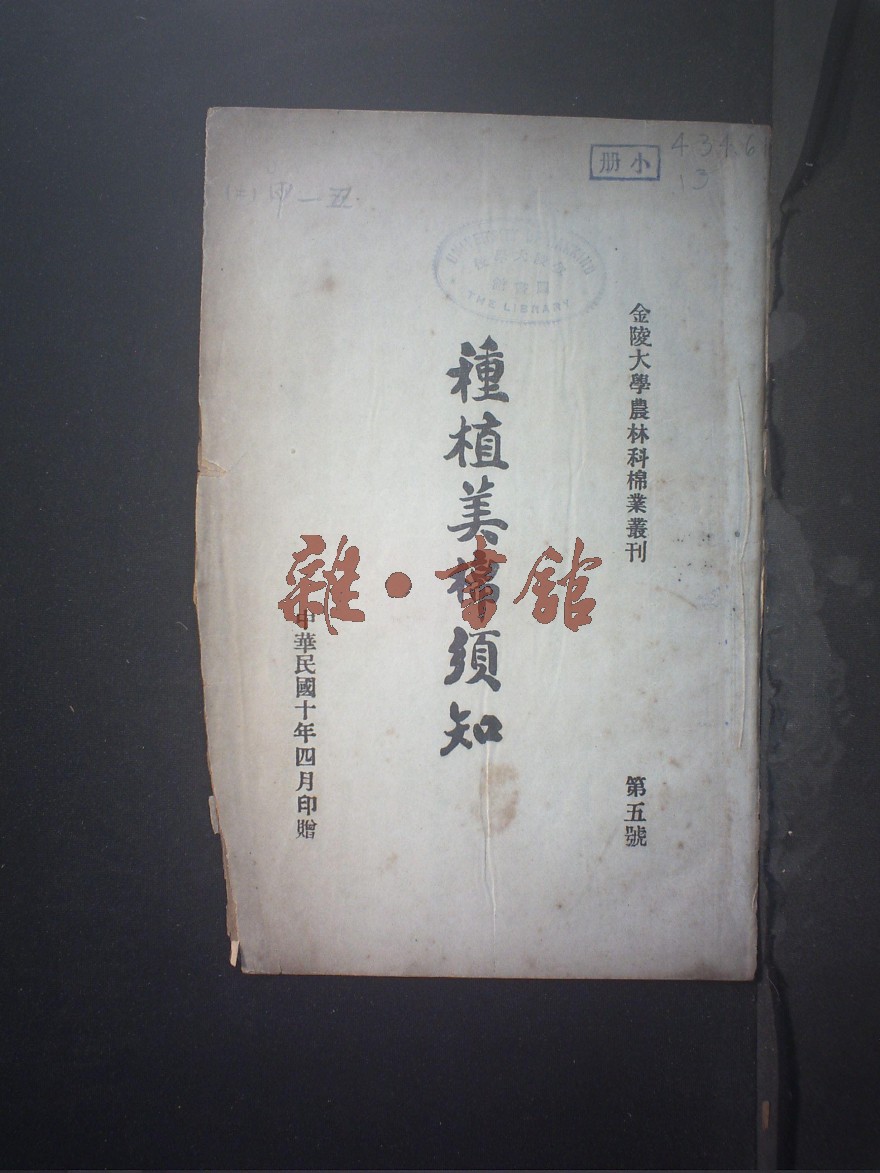 小册
434.6
13
甲一五
金陵大學農林科棉業叢刊
第五號
THE LIBRARY
種植美棉須知
雜·書館
中華民國十年四月印贈